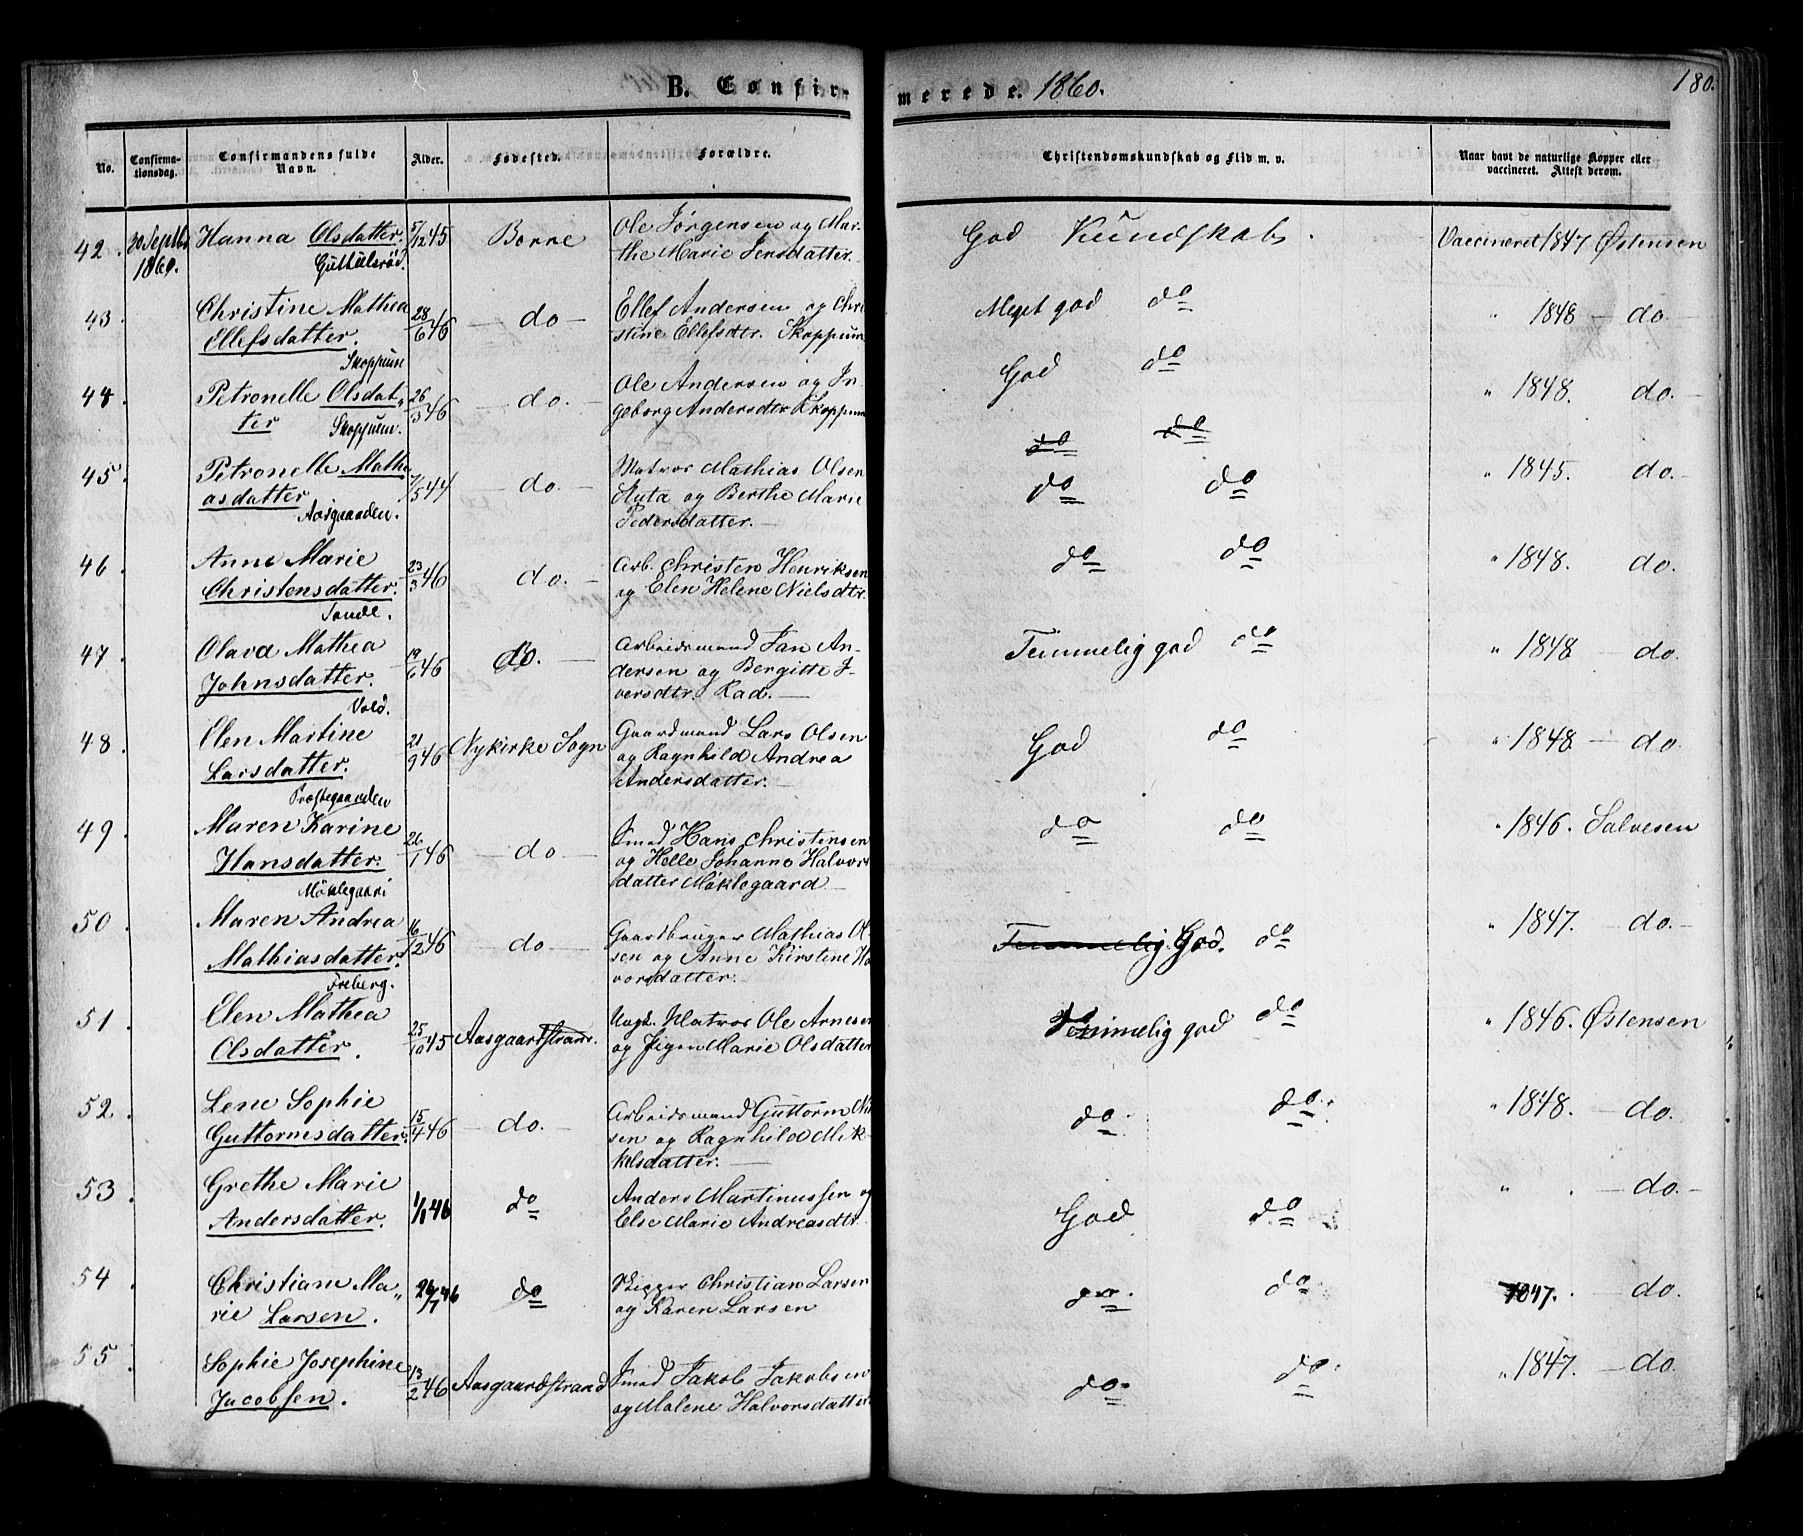 B. Confir-
merede. 1860.
180.
No.
Confirma-
tionsdag.
Confirmandens fulde
Navn.
Alder.
Fødested.
Forældre.
Christendomskundskab og Flid m. v.
Naar havt de naturlige Kopper eller
vaccineret. Attest derom.
42. 30 Septbr 1860. Hanna Olsdatter. 5/12 45 Borre Ole Jørgensen og Mar- God Kundskab. Vaccineret 1847 Østensen
Guttulsrød. the Marie Jensdatter.
43. Christine Mathea 28/6 46 — do — Ellef Andersen og Chri Meget god do " 1848 — do —
Ellefsdatter. stine Ellefsdtr. Skoppum
Skoppum
44. Petronelle Olsdat- 26/3 46 — do. — Ole Andersen og In God do " 1848. do. —
ter Skoppum. geborg Andersdtr Skoppum
do do
45. Petronelle Mathi 7/5 44 — do. — Matros Mathias Olsen do do " 1845. do. —
asdatter og Berthe Marie
Aasgaarden. Pedersdatter. —
46. Anne Marie 23/3 46 do. — Arb. Christen Henriksen do do " 1848. do.
Christensdatter. og Elen Helene Nielsdtr.
Sande.
47. Olava Mathea 19/6 46 do. — Arbeidsmand Jan An- Temmelig god do " 1848 — do.
Johnsdatter. dersen og Bergitte I-
Vold. versdtr. Rad. —
48. Elen Martine 21/9 46 Nykirke Sogn Gaardmand Lars Olsen God do " 1848 — do.
Larsdatter. og Ragnhild Andrea
Præstegaarden Andersdatter. —
49. Maren Karine 26/1 46 — do — Smed Hans Christensen do do " 1846. Salvesen
Hansdatter. og Helle Johanne Halvors
Møklegaard datter Møklegaard —
50. Maren Andrea 16/12 46 do — Gaardbruger Mathias Ol- Temmelig God. do " 1847. — do. —
Mathiasdatter. sen og Anne Kirstine Ha
Freberg. vorsdatter. —
51. Elen Mathea 25/10 45 Aasgaardstrand. Ungk. Matros Ole Arnesen Temmelig god do " 1846. Østensen
Olsdatter. og Marie Olsdatter
52. Lene Sophie 15/4 46 — do. — Arbeidsmand Guttorm Ni do. do. " 1848. — do.
Guttormsdatter. sen og Ragnhild Mik-
kelsdatter. —
53. Grethe Marie 46 do Anders Martinussen og God do " . — do. —
Andersdatter. Else Marie Andreasdtr.
54. Christiane Ma- 26/7 46 do Christian Larsen do. do 1847. — do.
rie Larsen. og Karen Larsen
55. Sophie Josephine 13/2 46 Aasgaardstrand Smed Jakob Jakobsen do. do. " 1847. — do.
Jacobsen. og Malene Halvorsdatter